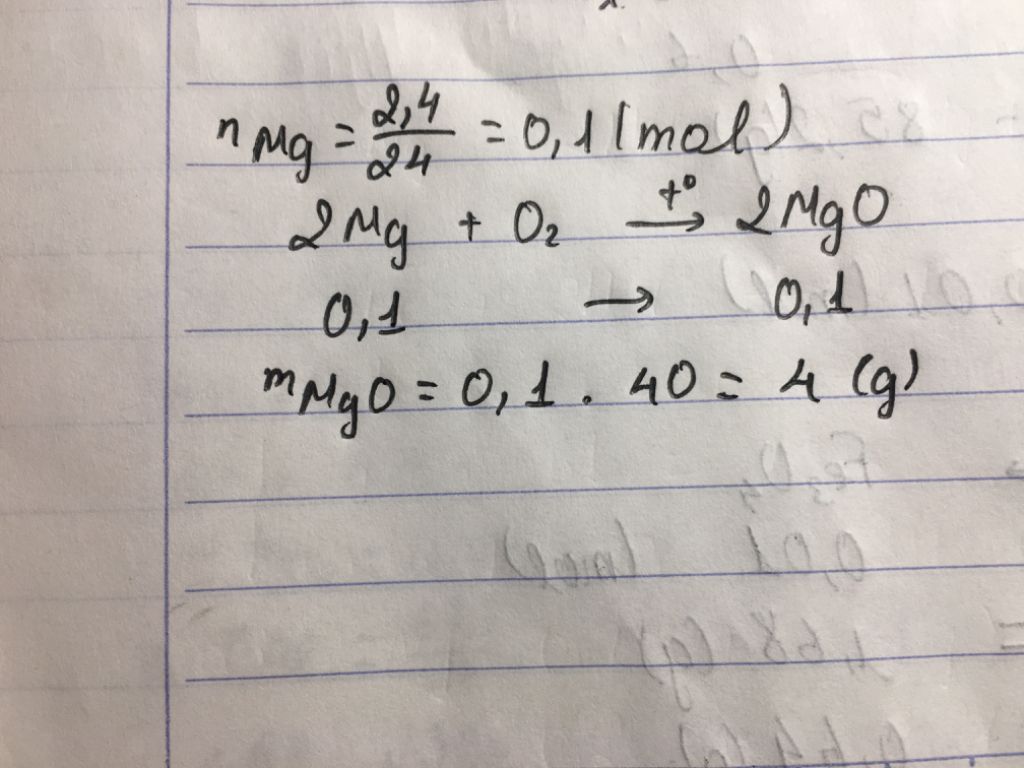 nMg = 2,4/24 = 0,1 (mol)
2Mg + O₂ →(t°) 2MgO
0,1 → 0,1
mMgO = 0,1 . 40 = 4 (g)